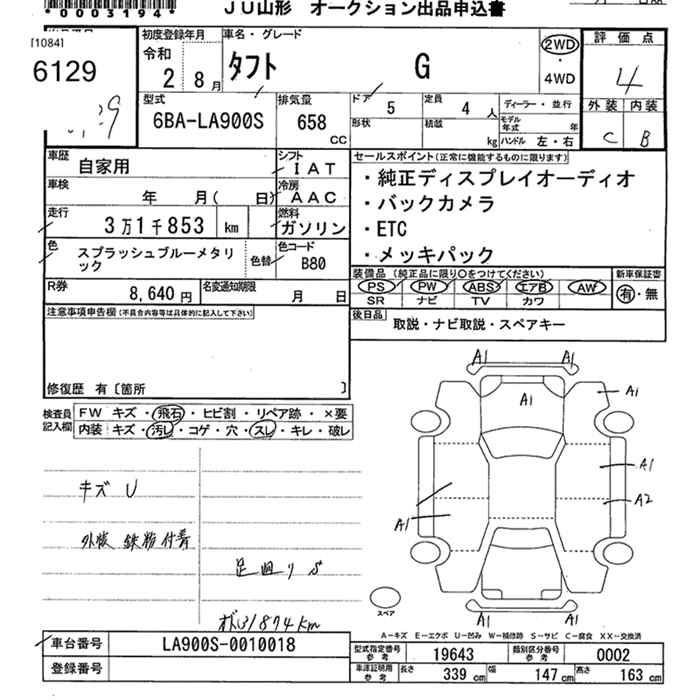 *0003194*
JU山形 オークション出品申込書
[1084]
6129
初度登録年月
令和
2 8月
車名・グレード
タフト G
2WD
・
4WD
評価点
4
外装 内装
C B
型式
6BA-LA900S
排気量
658
CC
ドア
5
形状
定員
4 人
積載
kg
ディーラー・並行
モデル年式 年
ハンドル 左・右
車歴
自家用
シフト
IAT
車検
年 月( 日)
冷房
AAC
走行
3万1千853 km
燃料
ガソリン
色
スプラッシュブルーメタリ
ック
色替
色コード
B80
R券
8,640円
名変通知期限
月 日
セールスポイント(正常に機能するものに限ります)
・純正ディスプレイオーディオ
・バックカメラ
・ETC
・メッキパック
装備品 (純正品に限り○をつけてください)
PS PW ABS エアB AW
SR ナビ TV カワ
新車保証書
有・無
後日品
取説・ナビ取説・スペアキー
注意事項申告欄(不具合内容等は具体的に記入して下さい)
修復歴 有〔箇所 〕
検査員
記入欄
FW キズ・飛石・ヒビ割・リペア跡・×要
内装 キズ・汚レ・コゲ・穴・スレ・キレ・破レ
キズ U
外板 鉄粉付着
足廻り S
A1 A1
A1
A1
A1
A2
A1
A1 A1
スペア
A-キズ E-エクボ U-凹み W-補修跡 S-サビ C-腐食 XX-交換済
車台番号
LA900S-0010018
登録番号
型式指定番号
参考
19643
類別区分番号
参考
0002
車庫証明用
参考
長さ
339 cm
幅
147 cm
高さ
163 cm